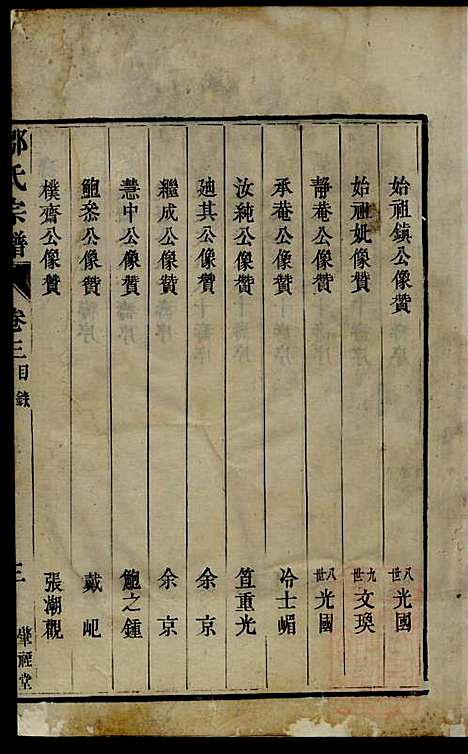 始祖鎮公像贊 八世光國
始祖妣像贊 九世文瑛
靜菴公像贊 八世光國
承菴公像贊 冷士嵋
汝純公像贊 笪重光
廸其公像贊 余京
繼成公像贊 余京
慧中公像贊 鮑之鍾
鮑叅公像贊 戴屺
樸齋公像贊 張潮觀
氏宗譜 卷三目錄 三 肇禋堂